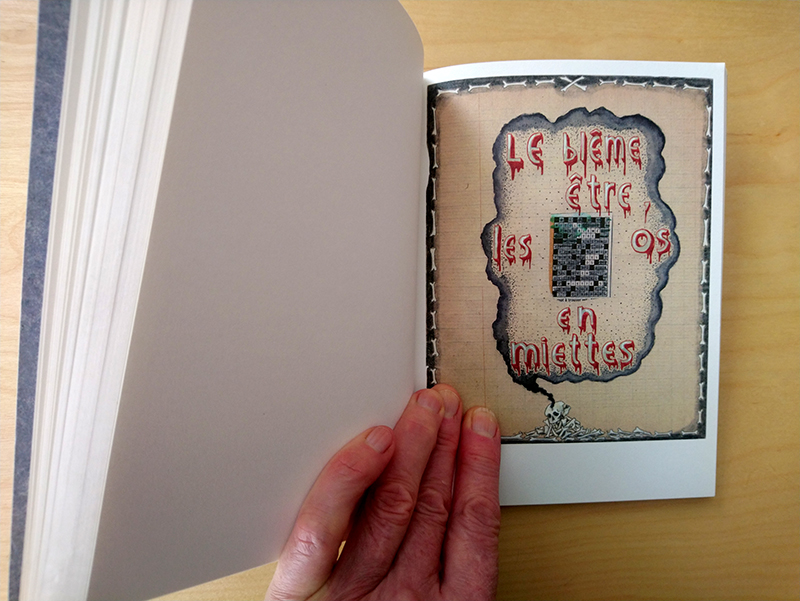 Le blême
être,
les os
en
miettes